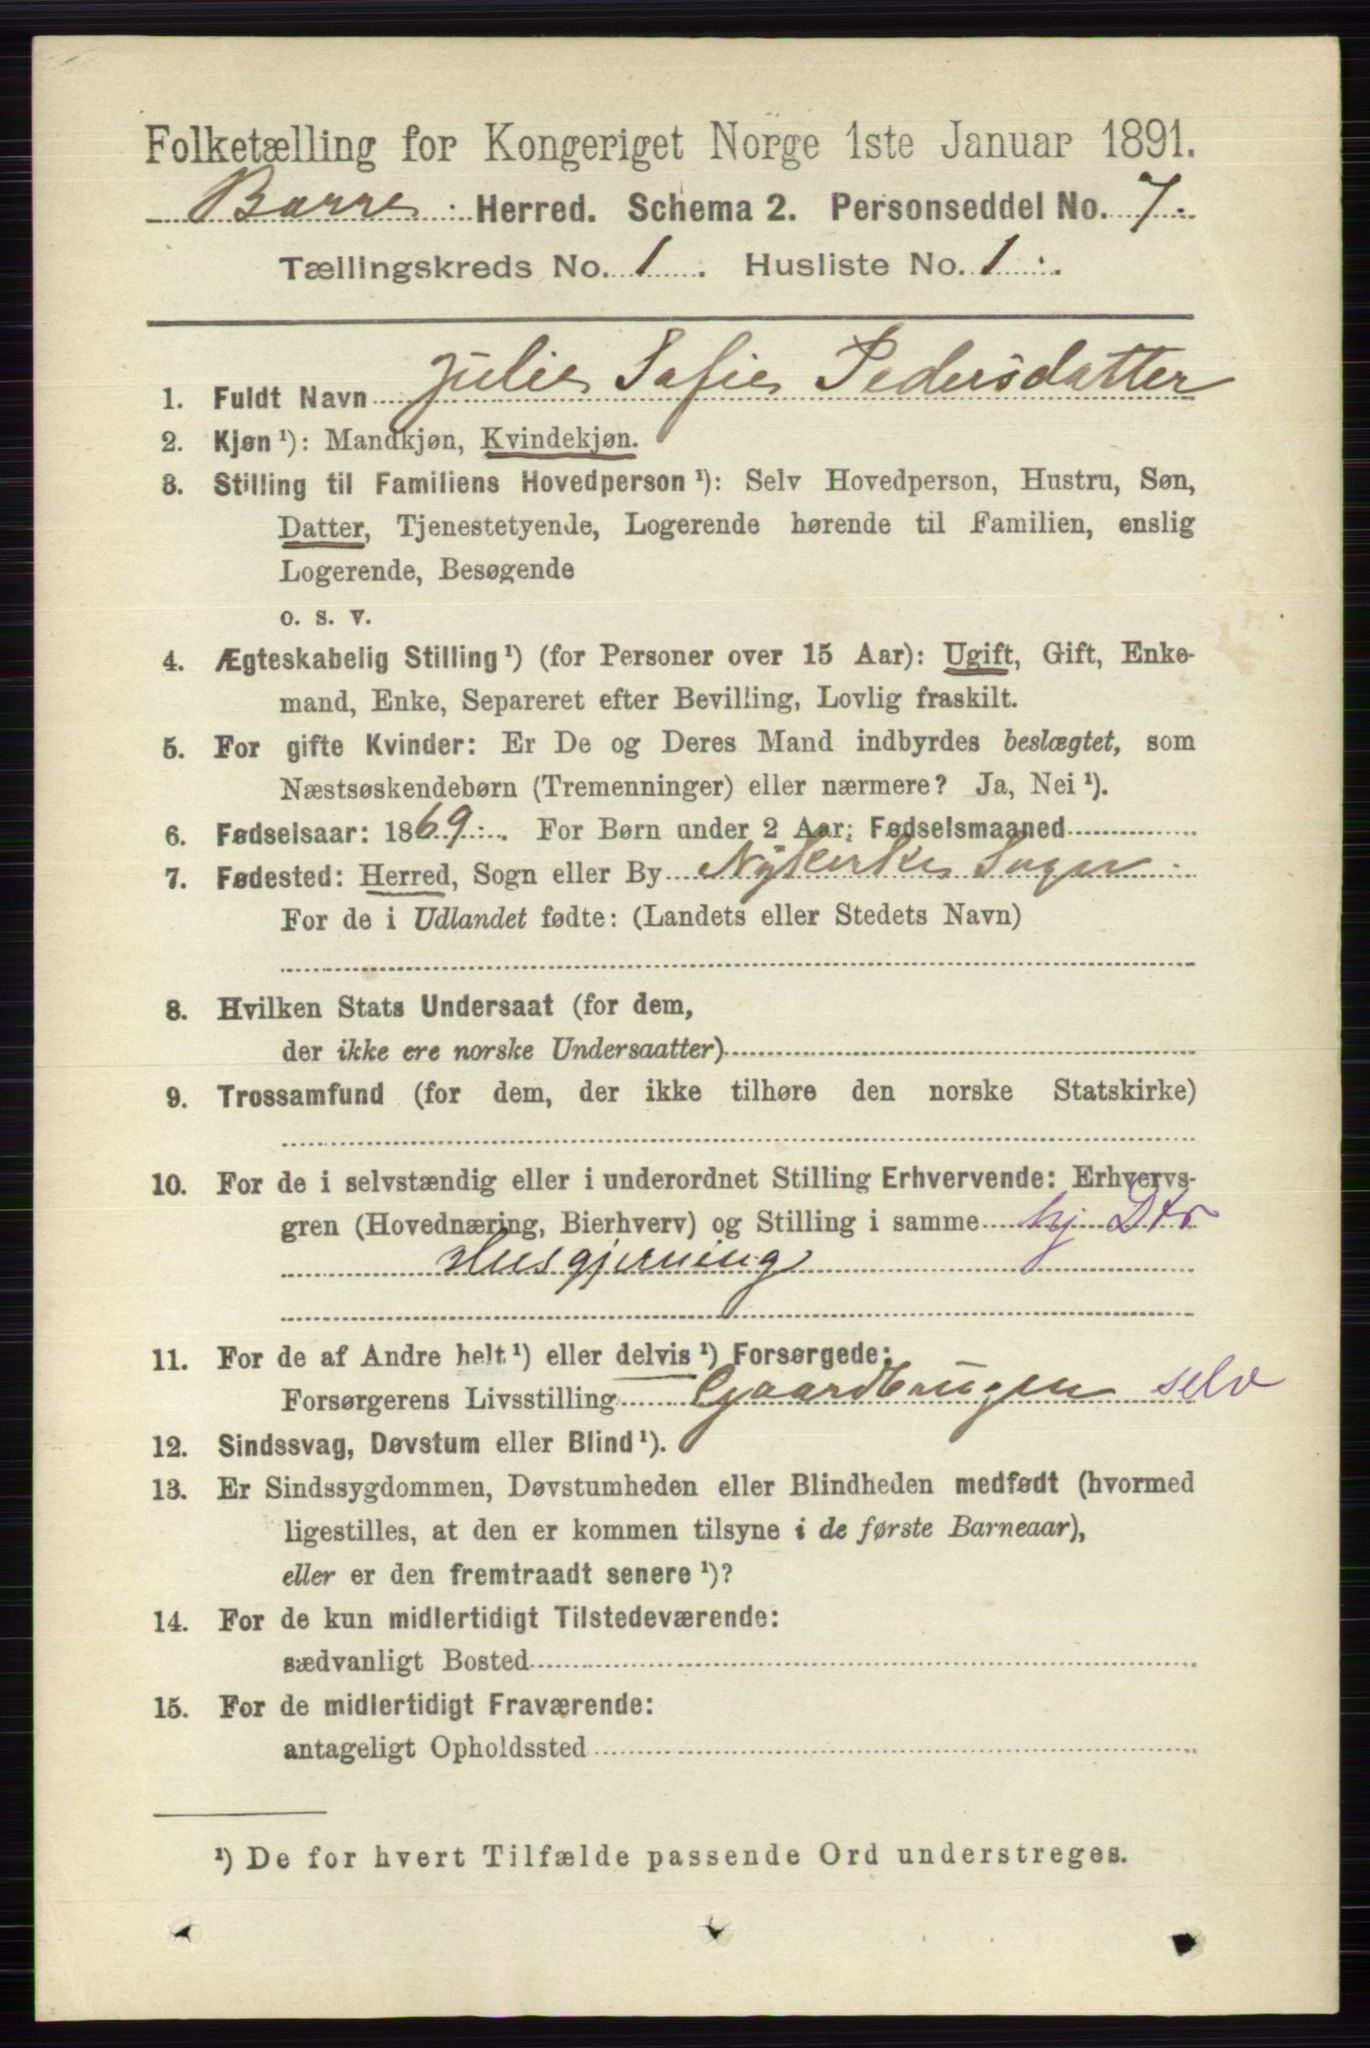 Folketælling for Kongeriget Norge 1ste Januar 1891.
Borre Herred. Schema 2. Personseddel No. 7.
Tællingskreds No. 1. Husliste No. 1.
1. Fuldt Navn Julie Sofie Pedersdatter
2. Kjøn ¹): Mandkjøn, Kvindekjøn.
3. Stilling til Familiens Hovedperson ¹): Selv Hovedperson, Hustru, Søn,
Datter, Tjenestetyende, Logerende hørende til Familien, enslig
Logerende, Besøgende
o. s. v.
4. Ægteskabelig Stilling ¹) (for Personer over 15 Aar): Ugift, Gift, Enke-
mand, Enke, Separeret efter Bevilling, Lovlig fraskilt.
5. For gifte Kvinder: Er De og Deres Mand indbyrdes beslægtet, som
Næstsøskendebørn (Tremenninger) eller nærmere? Ja, Nei ¹).
6. Fødselsaar: 1869. For Børn under 2 Aar: Fødselsmaaned
7. Fødested: Herred, Sogn eller By Nykirke Sogn
For de i Udlandet fødte: (Landets eller Stedets Navn)
8. Hvilken Stats Undersaat (for dem,
der ikke ere norske Undersaatter)
9. Trossamfund (for dem, der ikke tilhøre den norske Statskirke)
10. For de i selvstændig eller i underordnet Stilling Erhvervende: Erhvervs-
gren (Hovednæring, Bierhverv) og Stilling i samme hj Dtr
Husgjerning
11. For de af Andre helt ¹) eller delvis ¹) Forsørgede:
Forsørgerens Livsstilling Gaardbrugen selv
12. Sindssvag, Døvstum eller Blind ¹).
13. Er Sindssygdommen, Døvstumheden eller Blindheden medfødt (hvormed
ligestilles, at den er kommen tilsyne i de første Barneaar),
eller er den fremtraadt senere ¹)?
14. For de kun midlertidigt Tilstedeværende:
sædvanligt Bosted
15. For de midlertidigt Fraværende:
antageligt Opholdssted
¹) De for hvert Tilfælde passende Ord understreges.